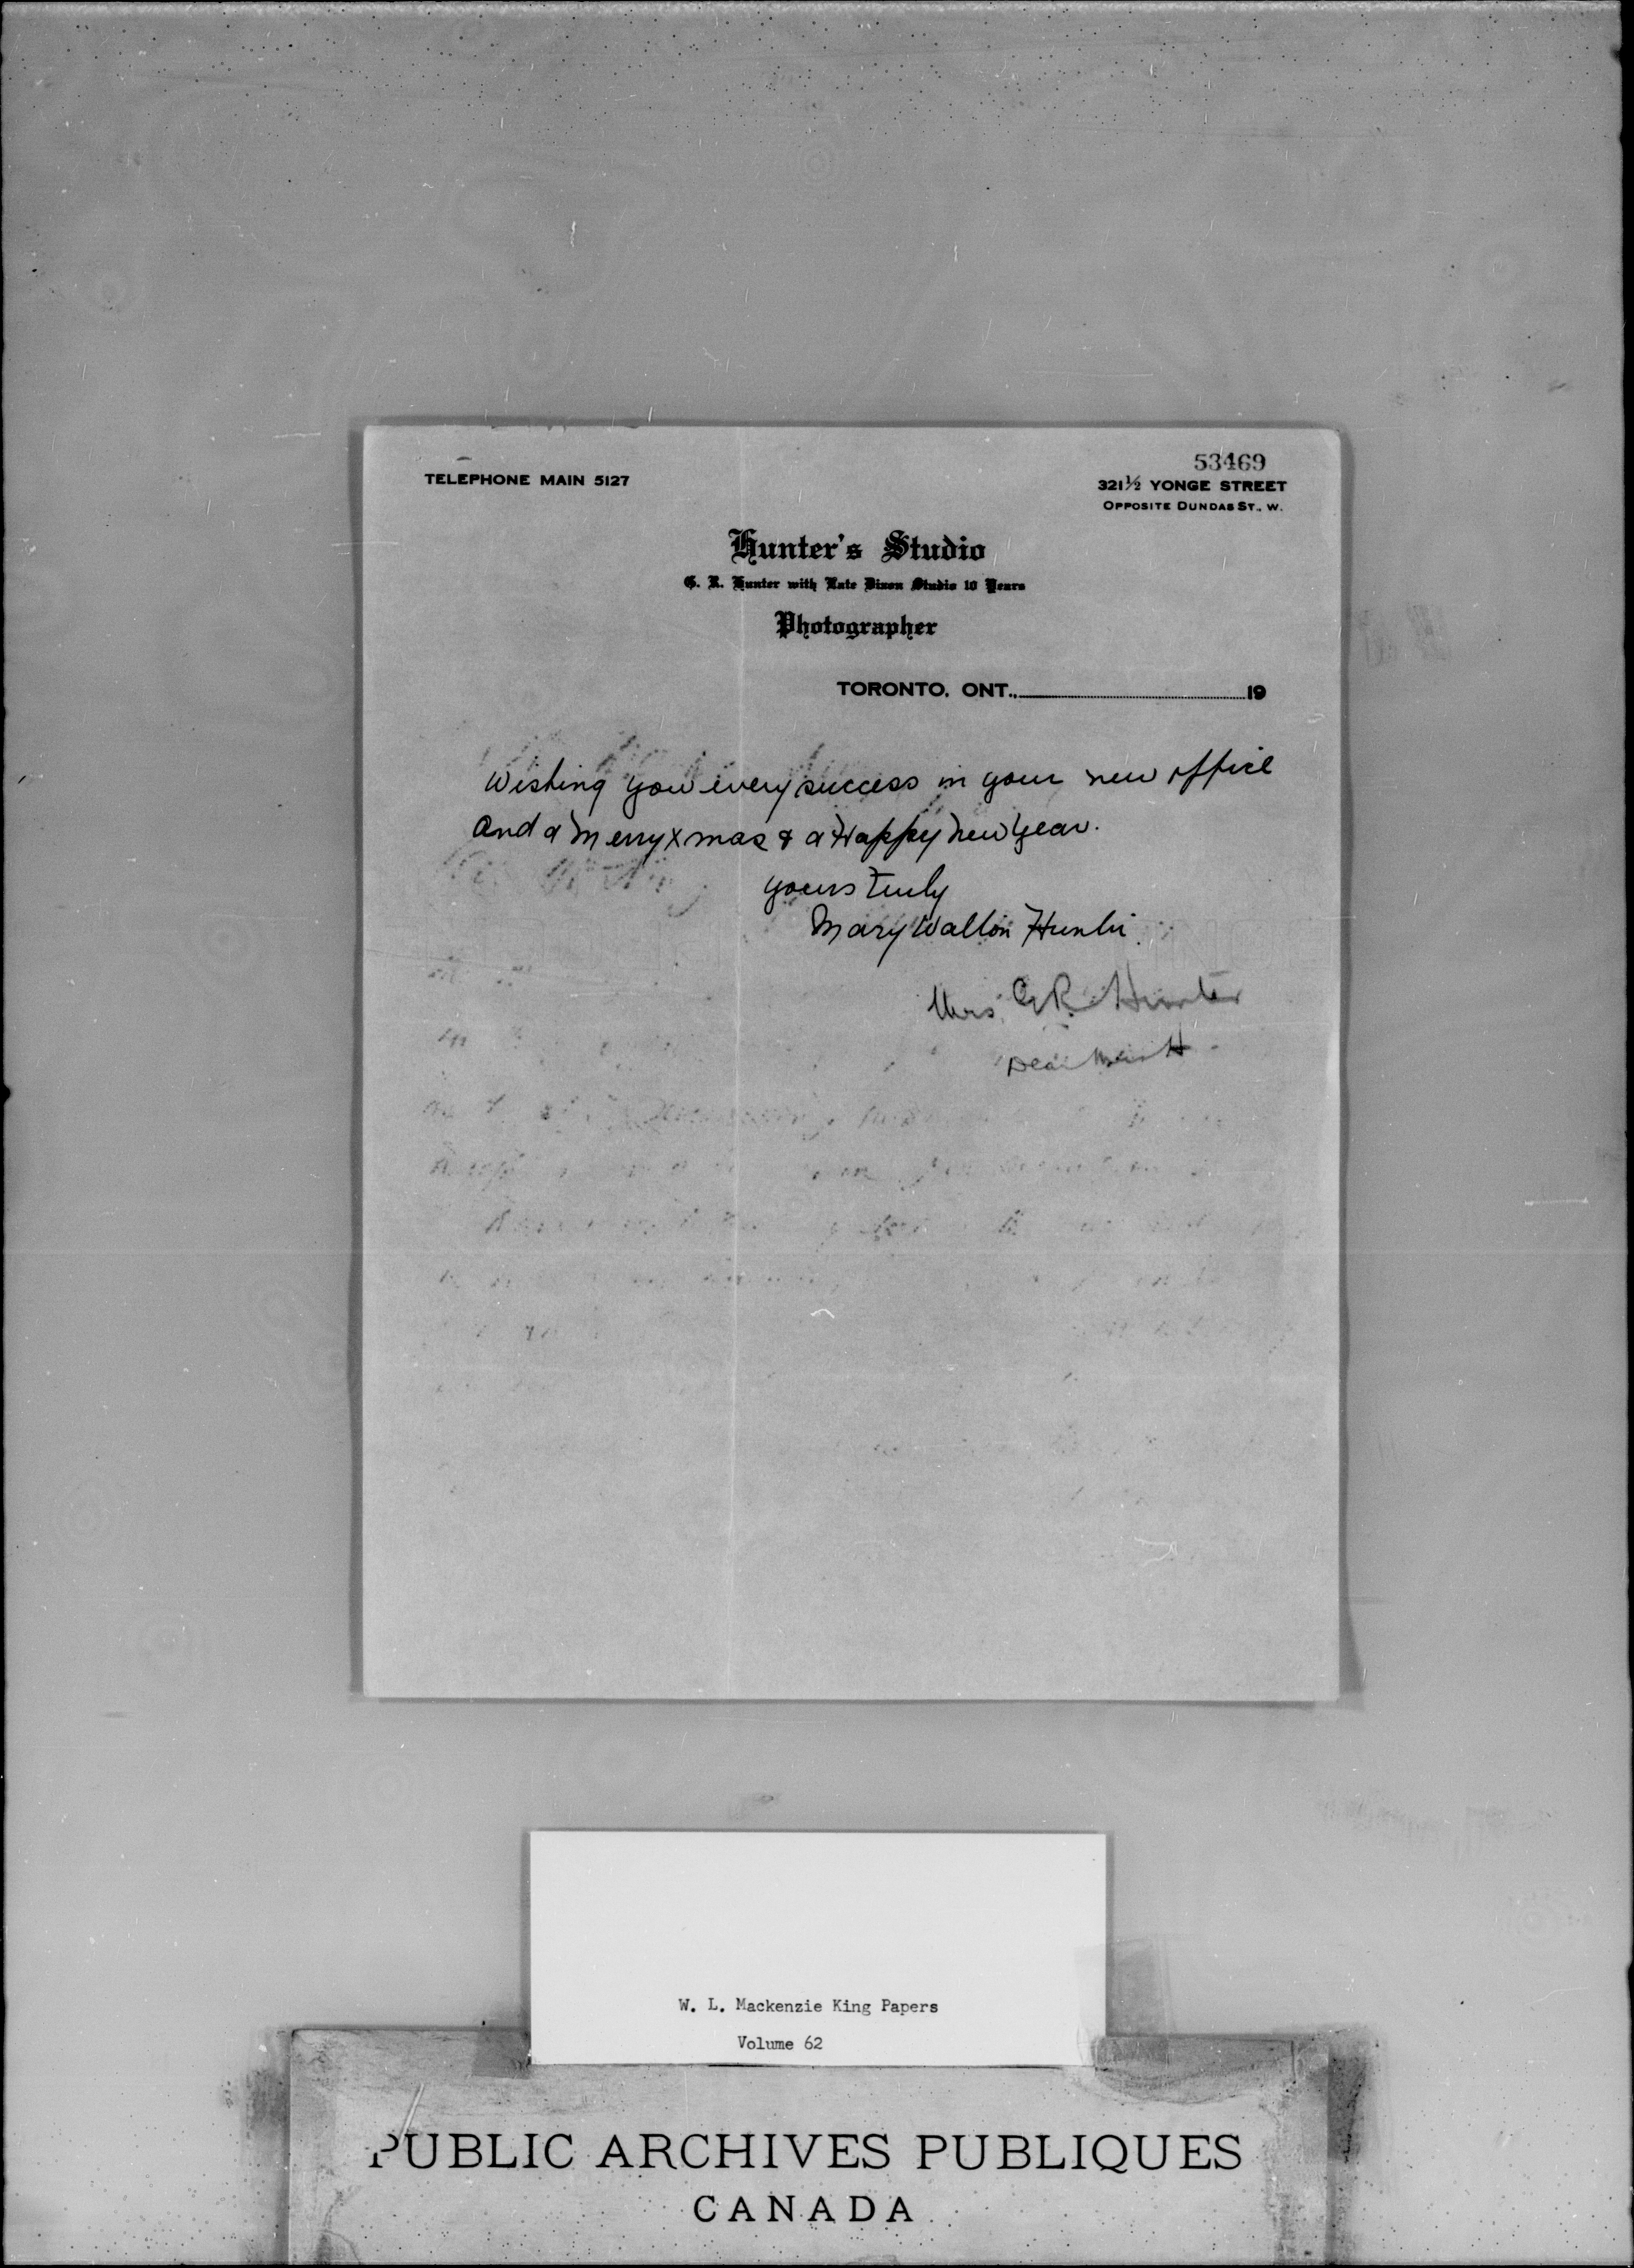 53469
TELEPHONE MAIN 5127
321½ YONGE STREET
OPPOSITE DUNDAS ST., W.
Hunter's Studio
G. R. Hunter with Late Dixon Studio 10 Years
Photographer
TORONTO, ONT., 19
Wishing you every success in your new office
and a Merry Xmas & a Happy New Year.
yours truly
Mary Walton Hunter
Mrs. G R. Hunter
Dear Mrs H
W. L. Mackenzie King Papers
Volume 62
PUBLIC ARCHIVES PUBLIQUES
CANADA